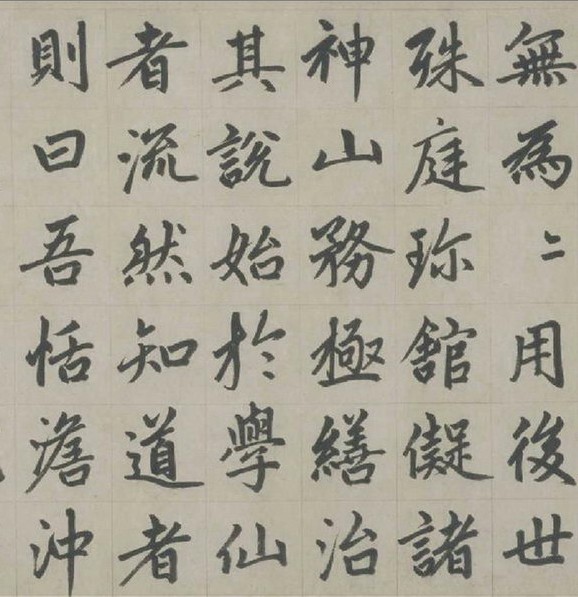 無為二用後世
殊庭珎舘儗諸
神山務極繕治
其說始於學仙
者流然知道者
則曰吾恬澹沖